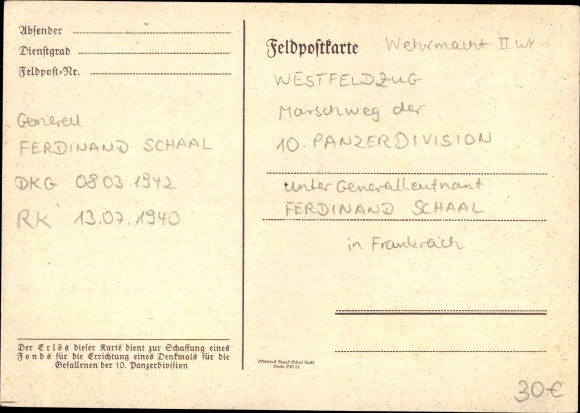 Absender
Dienstgrad
Feldpost=Nr.
Generell
FERDINAND SCHAAL
DKG 08 03 1942
RK 13.07.1940
Der Erlös dieser Karte dient zur Schaffung eines
Fonds für die Errichtung eines Denkmals für die
Gefallenen der 10. Panzerdivision
Feldpostkarte Wehrmacht II WK
WESTFELDZUG
Marschweg der
10. PANZERDIVISION
unter Generalleutnant
FERDINAND SCHAAL
in Frankreich
Berlin
30€